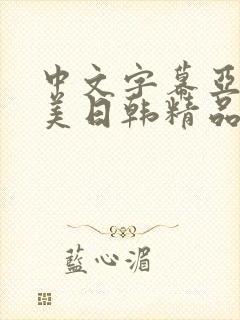 中文字幕亚
美日韩精品
藍心湄